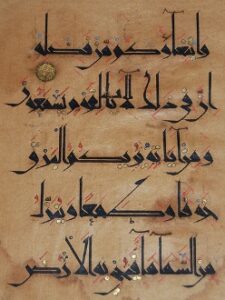 وابتغاؤكم من فضله
ان في ذلك لآيات لقوم يسمعون
ومن آياته يريكم البرق
خوفا وطمعا وينزل
من السماء ماء فيحيي به الارض